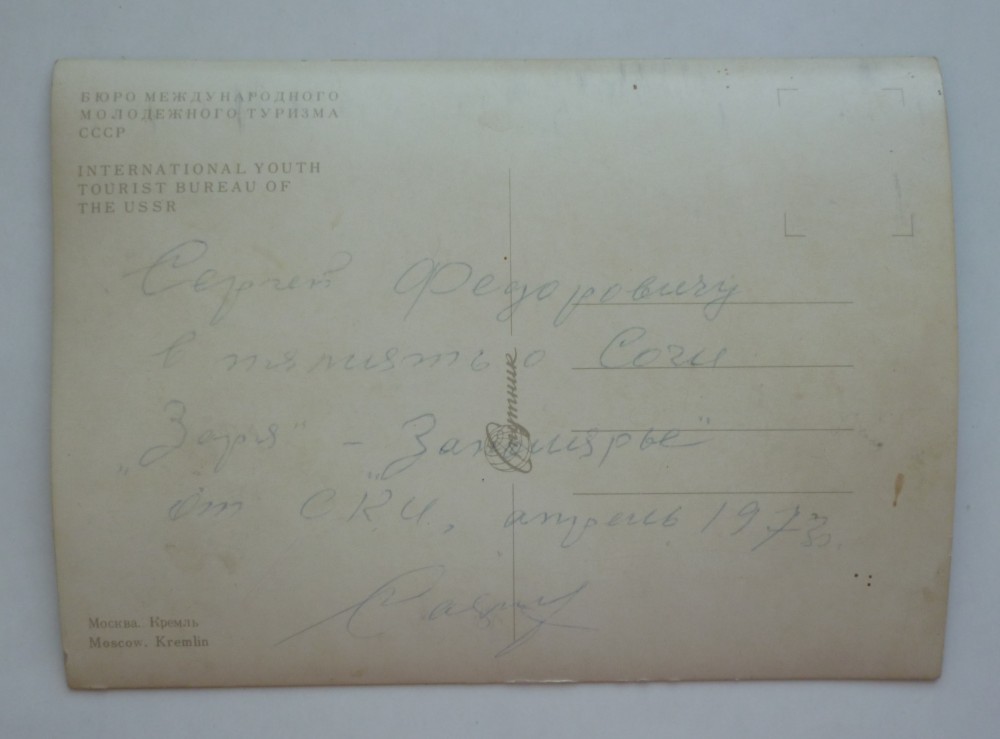 БЮРО МЕЖДУНАРОДНОГО
МОЛОДЕЖНОГО ТУРИЗМА
СССР
INTERNATIONAL YOUTH
TOURIST BUREAU OF
THE USSR
Сергей Федоровичу
в память о Сочи
„Заря" – „Заполярье"
от СКИ, апрель 1973
Спутник
Москва. Кремль
Moscow. Kremlin